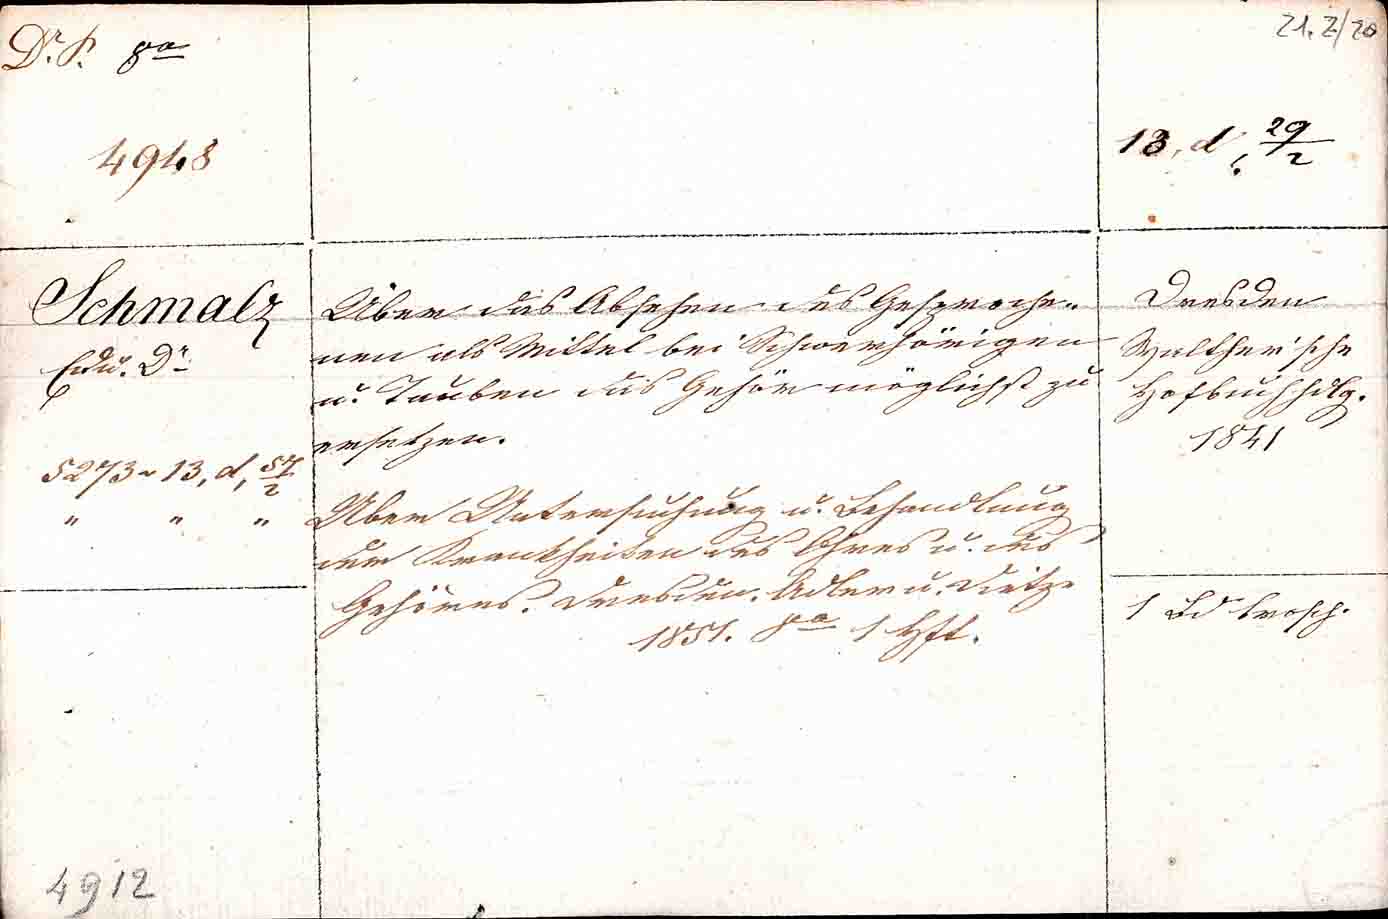 Dr. P. 8º
21. Z/20
4948
13, d, 29/2
Schmalz
Edu. Dr
Über das Absehen des Gesproche-
nen als Mittel bei Schwerhörigen
u. Tauben das Gehör möglichst zu
ersetzen.
Dresden
Walther'sche
Hofbuchhdlg.
1841
5273 ~ 13, d, 57/2
" " "
Über Untersuchung u. Behandlung
der Krankheiten des Ohres u. des
Gehöres. Dresden. Adler u. Dietze
1851. 8º 1 Hft.
1 Bd brosch.
4912